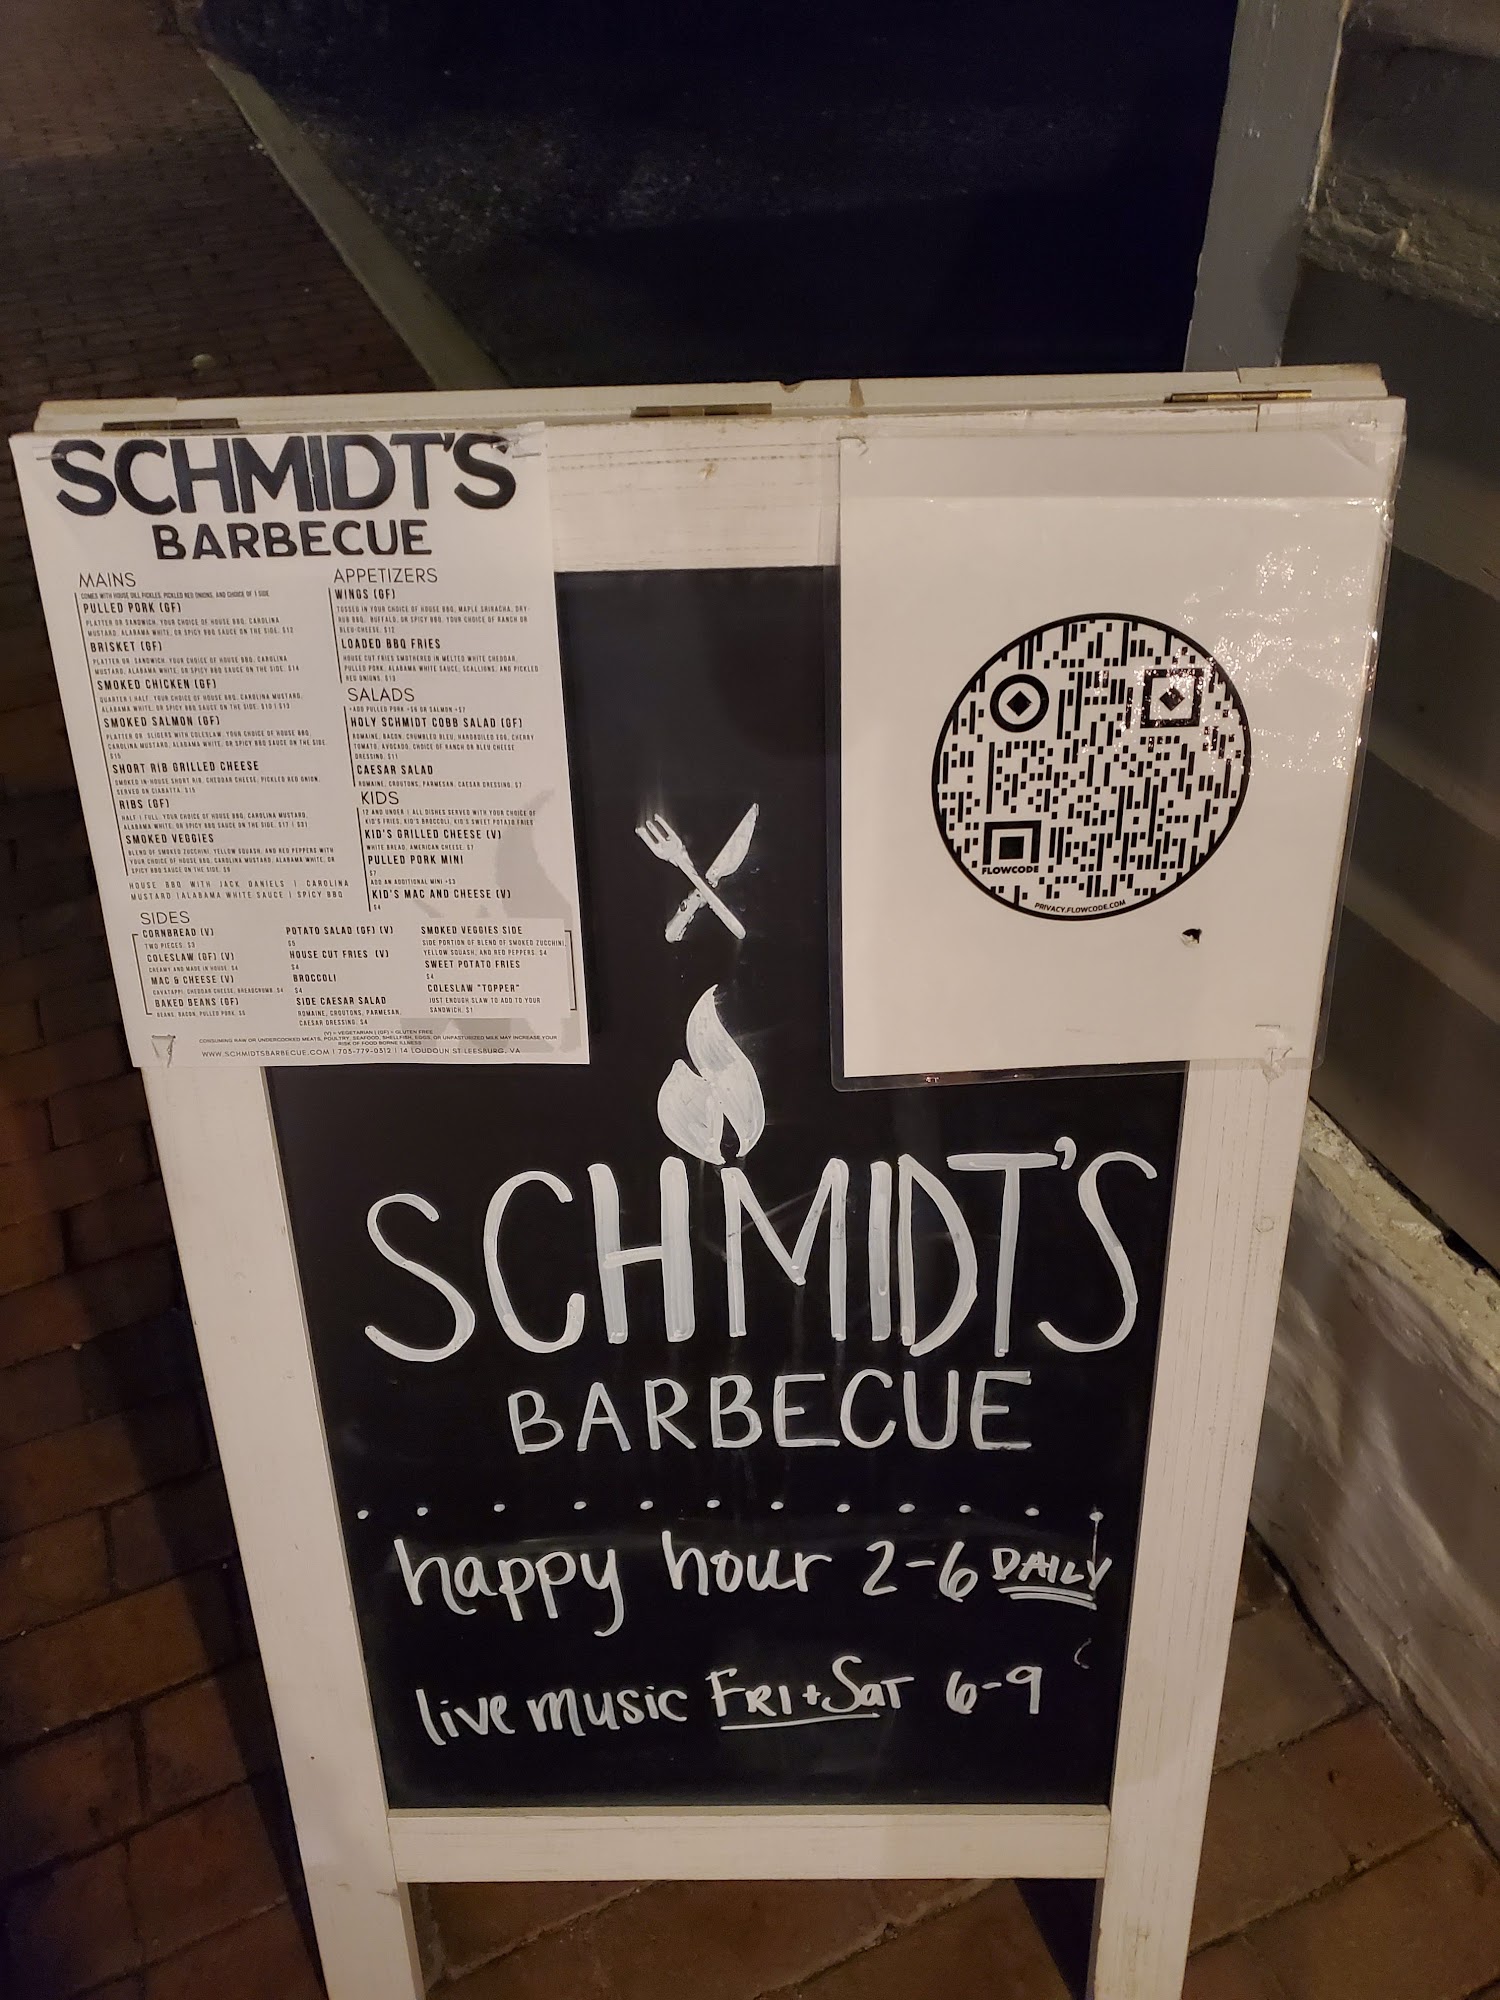 SCHMIDT'S
BARBECUE
MAINS
COMES WITH HOUSE DILL PICKLES, PICKLED RED ONIONS, AND CHOICE OF 1 SIDE
PULLED PORK (GF)
PLATTER OR SANDWICH, YOUR CHOICE OF HOUSE BBQ, CAROLINA
MUSTARD, ALABAMA WHITE, OR SPICY BBQ SAUCE ON THE SIDE. $12
BRISKET (GF)
PLATTER OR SANDWICH, YOUR CHOICE OF HOUSE BBQ, CAROLINA
MUSTARD, ALABAMA WHITE, OR SPICY BBQ SAUCE ON THE SIDE. $14
SMOKED CHICKEN (GF)
QUARTER | HALF, YOUR CHOICE OF HOUSE BBQ, CAROLINA MUSTARD,
ALABAMA WHITE, OR SPICY BBQ SAUCE ON THE SIDE. $10 | $13
SMOKED SALMON (GF)
PLATTER OR SLIDERS WITH COLESLAW, YOUR CHOICE OF HOUSE BBQ,
CAROLINA MUSTARD, ALABAMA WHITE, OR SPICY BBQ SAUCE ON THE SIDE.
$15
SHORT RIB GRILLED CHEESE
SMOKED IN-HOUSE SHORT RIB, CHEDDAR CHEESE, PICKLED RED ONION,
SERVED ON CIABATTA. $15
RIBS (GF)
HALF | FULL, YOUR CHOICE OF HOUSE BBQ, CAROLINA MUSTARD,
ALABAMA WHITE, OR SPICY BBQ SAUCE ON THE SIDE. $17 | $31
SMOKED VEGGIES
BLEND OF SMOKED ZUCCHINI, YELLOW SQUASH, AND RED PEPPERS WITH
YOUR CHOICE OF HOUSE BBQ, CAROLINA MUSTARD, ALABAMA WHITE, OR
SPICY BBQ SAUCE ON THE SIDE. $9
HOUSE BBQ WITH JACK DANIELS | CAROLINA
MUSTARD | ALABAMA WHITE SAUCE | SPICY BBQ
APPETIZERS
WINGS (GF)
TOSSED IN YOUR CHOICE OF HOUSE BBQ, MAPLE SRIRACHA, DRY-
RUB BBQ, BUFFALO, OR SPICY BBQ. YOUR CHOICE OF RANCH OR
BLEU-CHEESE. $12
LOADED BBQ FRIES
HOUSE CUT FRIES SMOTHERED IN MELTED WHITE CHEDDAR,
PULLED PORK, ALABAMA WHITE SAUCE, SCALLIONS, AND PICKLED
RED ONIONS. $13
SALADS
+ADD PULLED PORK +$6 OR SALMON +$7
HOLY SCHMIDT COBB SALAD (GF)
ROMAINE, BACON, CRUMBLED BLEU, HARDBOILED EGG, CHERRY
TOMATO, AVOCADO, CHOICE OF RANCH OR BLEU CHEESE
DRESSING. $11
CAESAR SALAD
ROMAINE, CROUTONS, PARMESAN, CAESAR DRESSING. $7
KIDS
12 AND UNDER | ALL DISHES SERVED WITH YOUR CHOICE OF
KID'S FRIES, KID'S BROCCOLI, KID'S SWEET POTATO FRIES
KID'S GRILLED CHEESE (V)
WHITE BREAD, AMERICAN CHEESE. $7
PULLED PORK MINI
$7
ADD AN ADDITIONAL MINI +$3
KID'S MAC AND CHEESE (V)
$4
SIDES
CORNBREAD (V)
TWO PIECES. $3
COLESLAW (GF) (V)
CREAMY AND MADE IN HOUSE. $4
MAC & CHEESE (V)
CAVATAPPI, CHEDDAR CHEESE, BREADCRUMB. $4
BAKED BEANS (GF)
BEANS, BACON, PULLED PORK. $5
POTATO SALAD (GF) (V)
$5
HOUSE CUT FRIES (V)
$4
BROCCOLI
$4
SIDE CAESAR SALAD
ROMAINE, CROUTONS, PARMESAN,
CAESAR DRESSING. $4
SMOKED VEGGIES SIDE
SIDE PORTION OF BLEND OF SMOKED ZUCCHINI,
YELLOW SQUASH, AND RED PEPPERS. $4
SWEET POTATO FRIES
$4
COLESLAW "TOPPER"
JUST ENOUGH SLAW TO ADD TO YOUR
SANDWICH. $1
(V) = VEGETARIAN | (GF) = GLUTEN FREE
CONSUMING RAW OR UNDERCOOKED MEATS, POULTRY, SEAFOOD, SHELLFISH, EGGS, OR UNPASTURIZED MILK MAY INCREASE YOUR
RISK OF FOOD BORNE ILLNESS
WWW.SCHMIDTSBARBECUE.COM | 703-779-0312 | 14 LOUDOUN ST LEESBURG, VA
FLOWCODE
PRIVACY.FLOWCODE.COM
SCHMIDT'S
BARBECUE
happy hour 2-6 DAILY
live music FRI+SAT 6-9